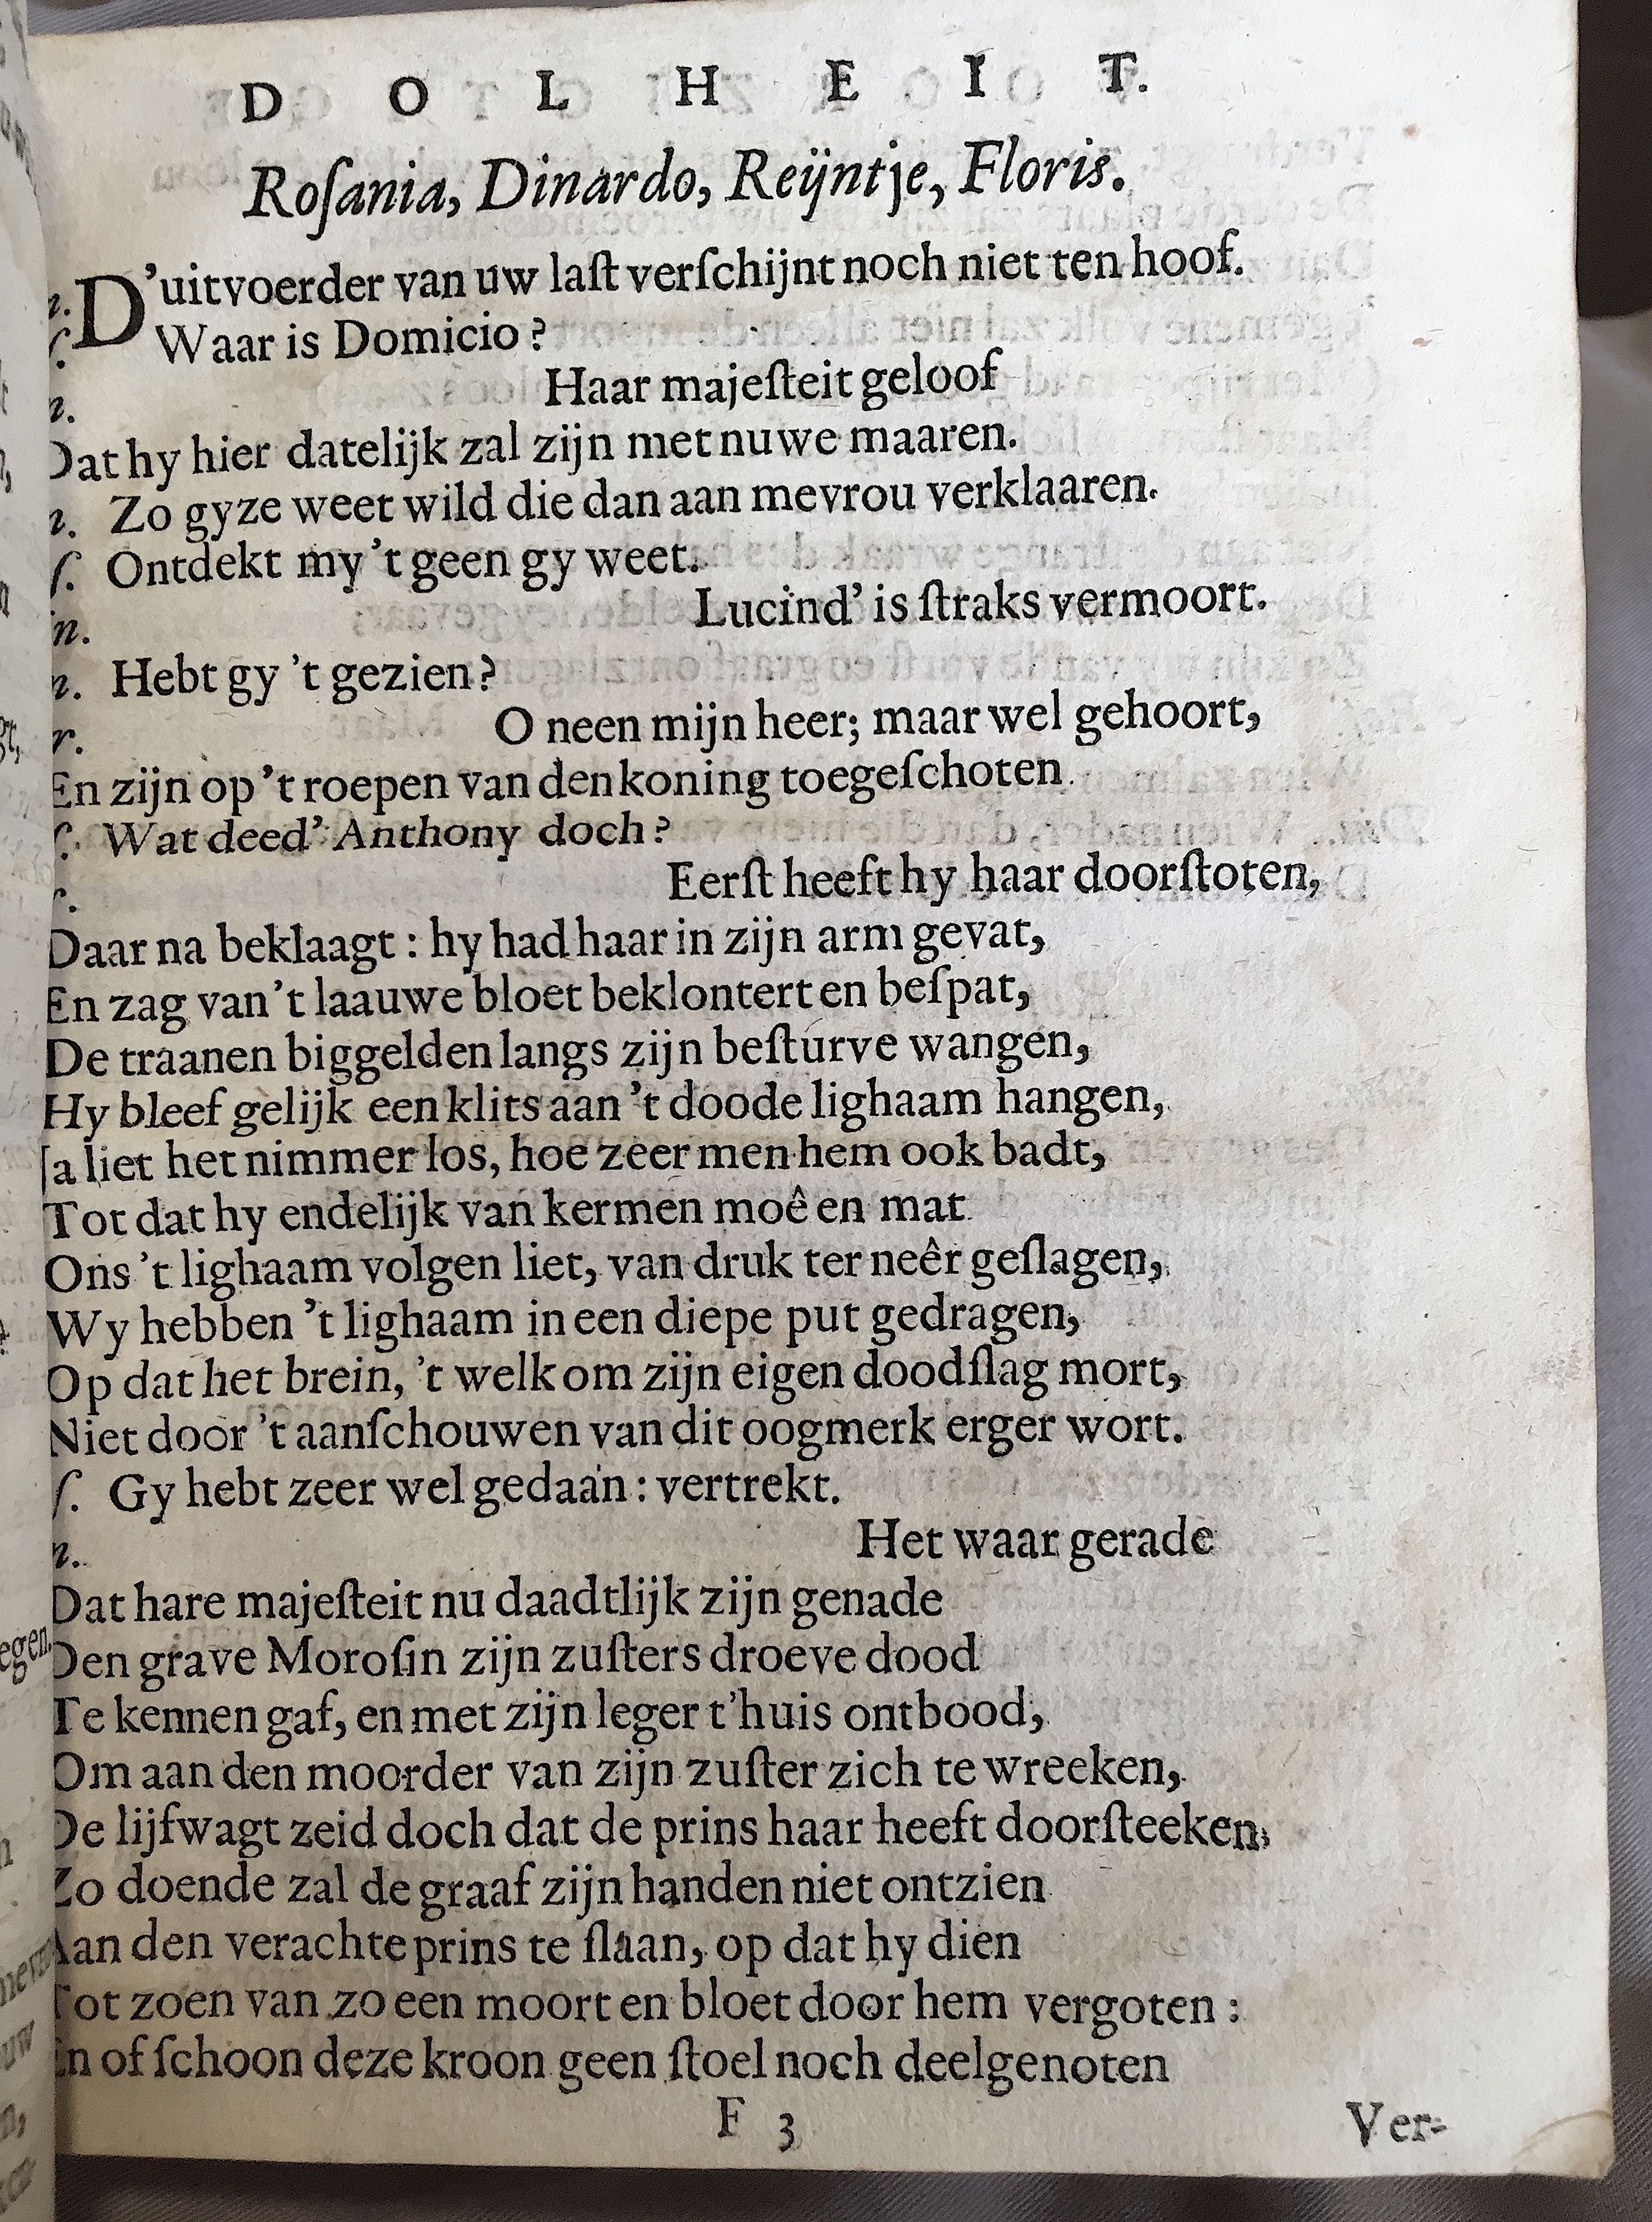 DOLHEIT.
Roſania, Dinardo, Reÿntje, Floris.
n. D’uitvoerder van uw laſt verſchijnt noch niet ten hoof.
ſ. Waar is Domicio?
n. Haar majeſteit geloof
Dat hy hier datelijk zal zijn met nuwe maaren.
n. Zo gy ze weet wild die dan aan mevrou verklaaren.
ſ. Ontdekt my ’t geen gy weet.
in. Lucind’ is ſtraks vermoort.
n. Hebt gy ’t gezien?
r. O neen mijn heer; maar wel gehoort,
En zijn op ’t roepen van den koning toegeſchoten.
ſ. Wat deed’ Anthony doch?
r. Eerſt heeft hy haar doorſtoten,
Daar na beklaagt: hy had haar in zijn arm gevat,
En zag van ’t laauwe bloet beklontert en beſpat,
De traanen biggelden langs zijn beſturve wangen,
Hy bleef gelijk een klits aan ’t doode lighaam hangen,
Ja liet het nimmer los, hoe zeer men hem ook badt,
Tot dat hy endelijk van kermen moê en mat
Ons ’t lighaam volgen liet, van druk ter neêr geſlagen,
Wy hebben ’t lighaam in een diepe put gedragen,
Op dat het brein, ’t welk om zijn eigen doodſlag mort,
Niet door ’t aanſchouwen van dit oogmerk erger wort.
ſ. Gy hebt zeer wel gedaan: vertrekt.
n. Het waar gerade
Dat hare majeſteit nu daadtlijk zijn genade
Den grave Moroſin zijn zuſters droeve dood
Te kennen gaf, en met zijn leger t’huis ontbood,
Om aan den moorder van zijn zuſter zich te wreeken,
De lijfwagt zeid doch dat de prins haar heeft doorſteeken,
Zo doende zal de graaf zijn handen niet ontzien
Aan den verachte prins te ſlaan, op dat hy dien
Tot zoen van zo een moort en bloet door hem vergoten:
En of ſchoon deze kroon geen ſtoel noch deelgenoten
F 3 Ver-